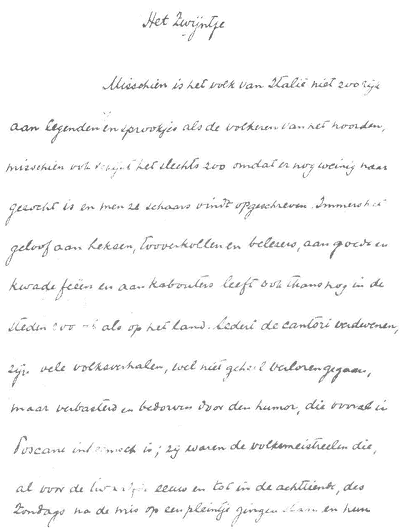 Het Zwijntje
Misschien is het volk van Italië niet zoo rijk
aan legenden en sprookjes als de volkeren van het noorden,
misschien ook schijnt het slechts zoo omdat er nog weinig naar
gezocht is en men ze schaars vindt opgeschreven. Immers het
geloof aan heksen, tooverkollen en belezers, aan goede en
kwade feeën en aan kabouters leeft ook thans nog in de
steden zoo als op het land. Sedert de cantori verdwenen,
zijn vele volksverhalen, wel niet geheel verloren gegaan,
maar verbasterd en bedorven door den humor, die overal in
Toscane inheemsch is; zij waren de volksmeistreelen die,
al voor de eeuw en tot in de achttiende, des
Zondags na de mis op een pleintje gingen staan en hun